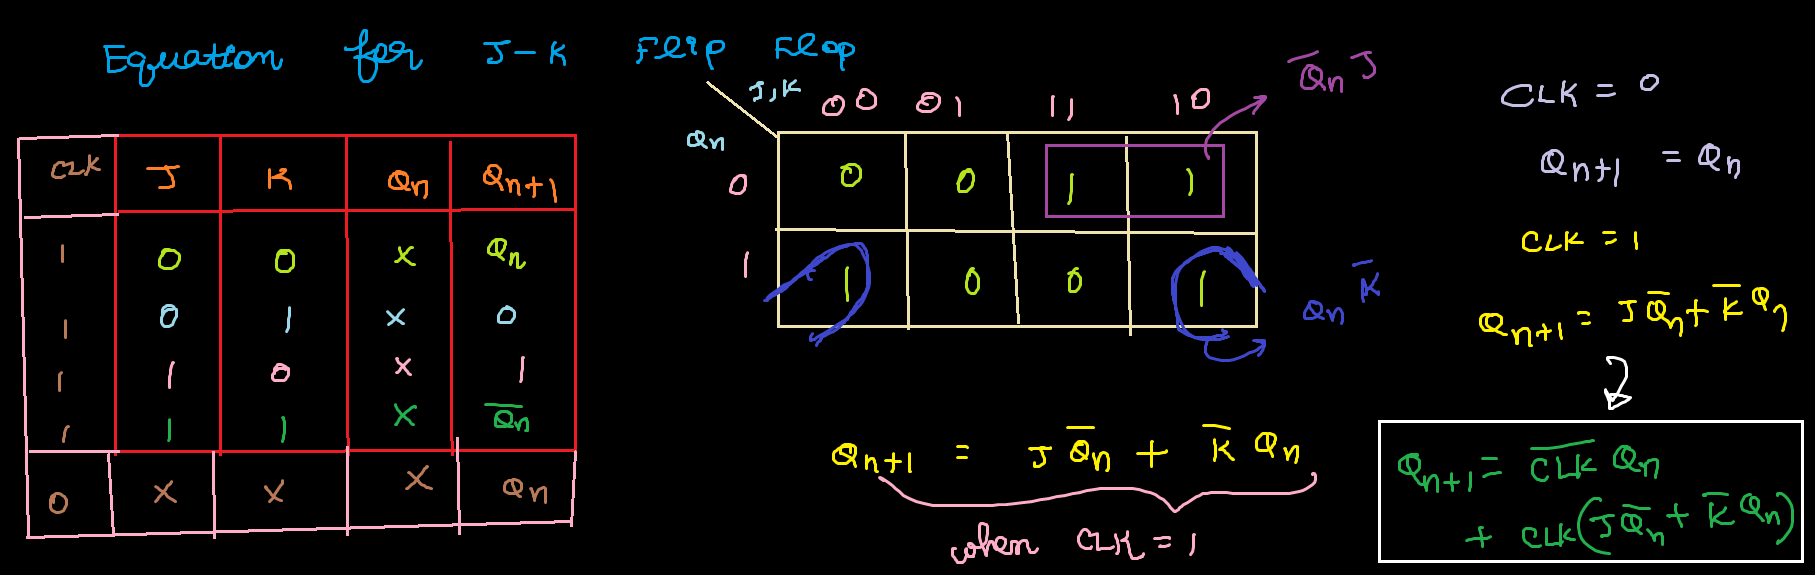 Equation for J-K Flip Flop
CLK J K Qn Qn+1
1 0 0 x Qn
1 0 1 x 0
1 1 0 x 1
1 1 1 x Q̅n
0 x x x Qn
J,K 00 01 11 10
Qn
0 0 0 1 1
1 1 0 0 1
Q̅n J
Qn K̅
Qn+1 = J Q̅n + K̅ Qn
when CLK = 1
CLK = 0
Qn+1 = Qn
CLK = 1
Qn+1 = J Q̅n + K̅ Qn
Qn+1 = C̅L̅K̅ Qn
+ CLK(J Q̅n + K̅ Qn)